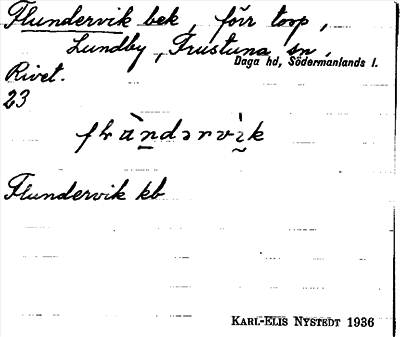 Flundervik bek, förr torp,
Lundby, Frustuna sn,
Daga hd, Södermanlands l.
Rivet.
23
Flundervik kb
KARL-ELIS NYSTEDT 1936